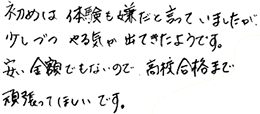 初めは 体験も嫌だと言っていましたが
少しづつ やる気が出てきたようです。
安い金額でもないので 高校合格まで
頑張ってほしいです。